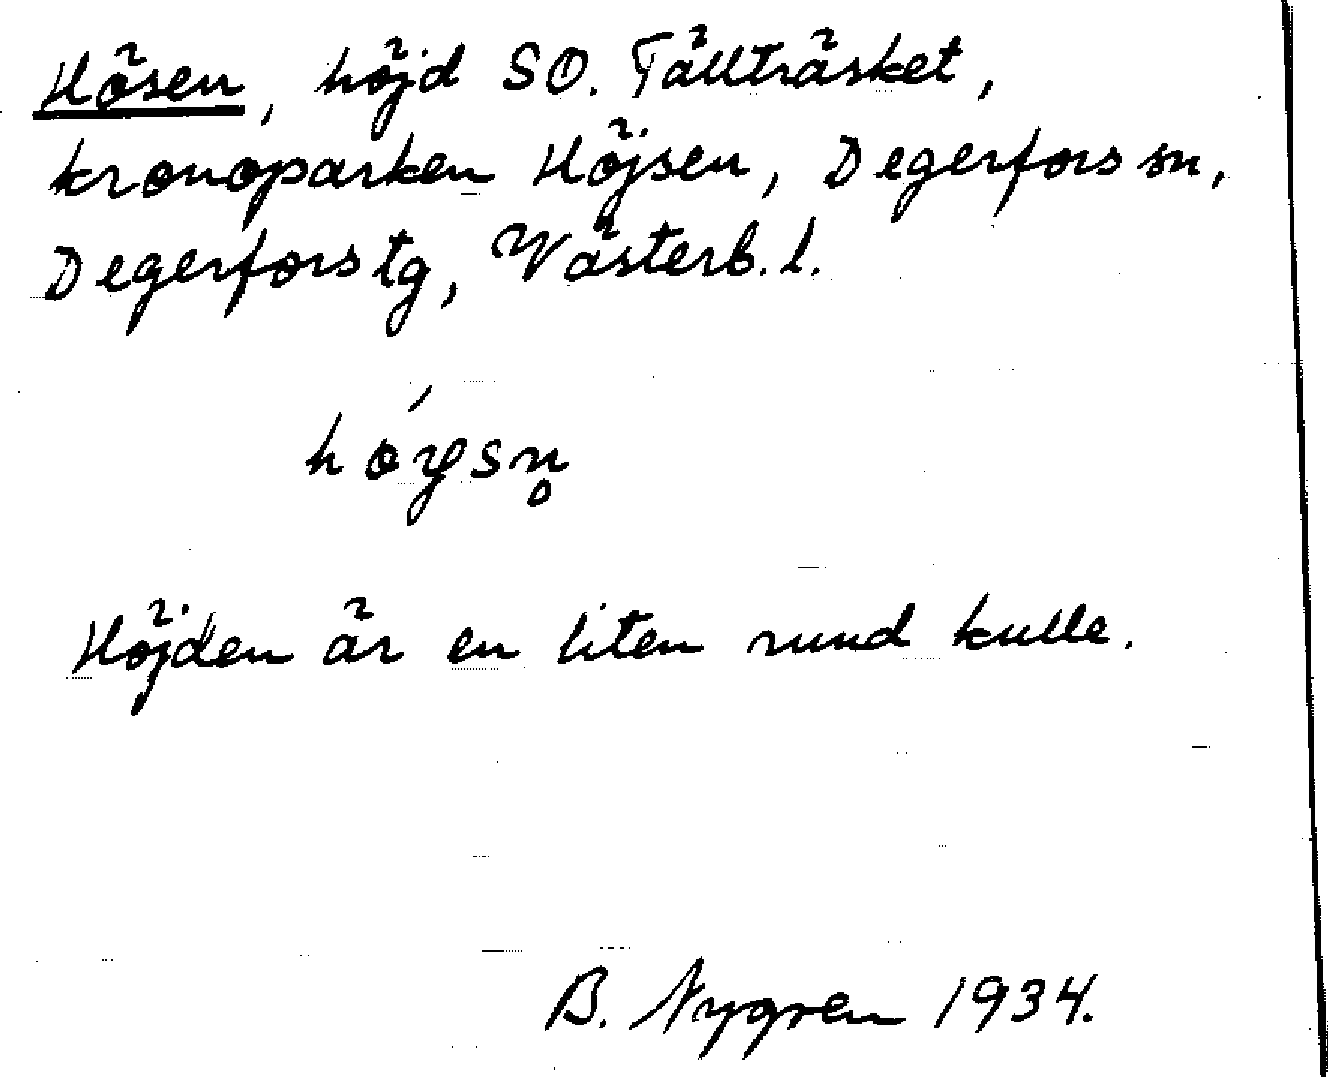 Hösen, höjd SO. Tällträsket,
kronoparken Höjsen, Degerfors sn,
Degerfors tg, Västerb. l.
hǿysn̥
Höjden är en liten rund kulle.
B. Nygren 1934.